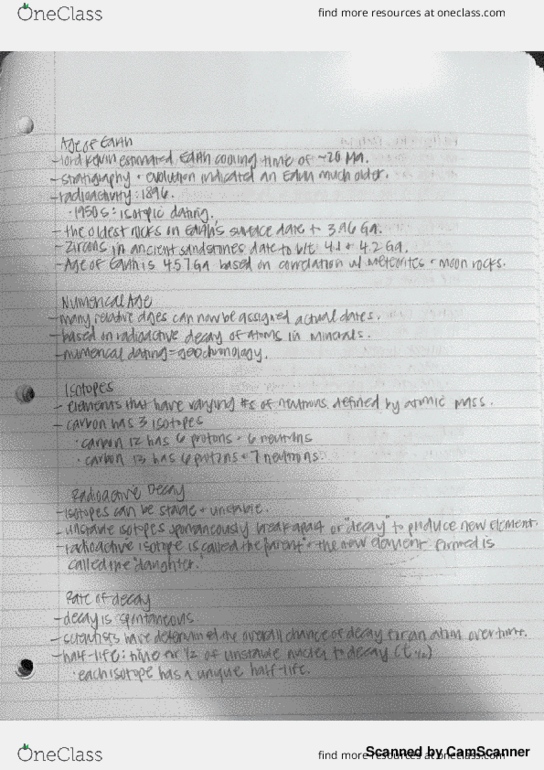 OneClass
find more resources at oneclass.com
Age of Earth
- lord Kelvin estimated Earth cooling time of ~20 Ma.
- stratigraphy + evolution indicated an Earth much older.
- radioactivity: 1896.
· 1950s: isotopic dating.
- the oldest rocks on Earth's surface date to 3.96 Ga.
- Zircons in ancient sandstones date to b/t 4.1 + 4.2 Ga.
- Age of Earth is 4.57 Ga based on correlation w/ meteorites + moon rocks.
Numerical Age
- many relative ages can now be assigned actual dates.
- based on radioactive decay of atoms in minerals.
- numerical dating = geochronology.
Isotopes
- elements that have varying #s of neutrons, defined by atomic mass.
- carbon has 3 isotopes
· carbon 12 has 6 protons + 6 neutrons
· carbon 13 has 6 protons + 7 neutrons.
Radioactive Decay
- isotopes can be stable + unstable.
- unstable isotopes spontaneously break apart or "decay" to produce new element.
- radioactive isotope is called the "parent" + the new element formed is
called the "daughter."
Rate of decay
- decay is spontaneous
- scientists have determined the overall chance of decay for an atom over time.
- half-life: time for 1/2 of unstable nuclei to decay (t 1/2)
· each isotope has a unique half-life.
OneClass
find more resources at oneclass.com
Scanned by CamScanner